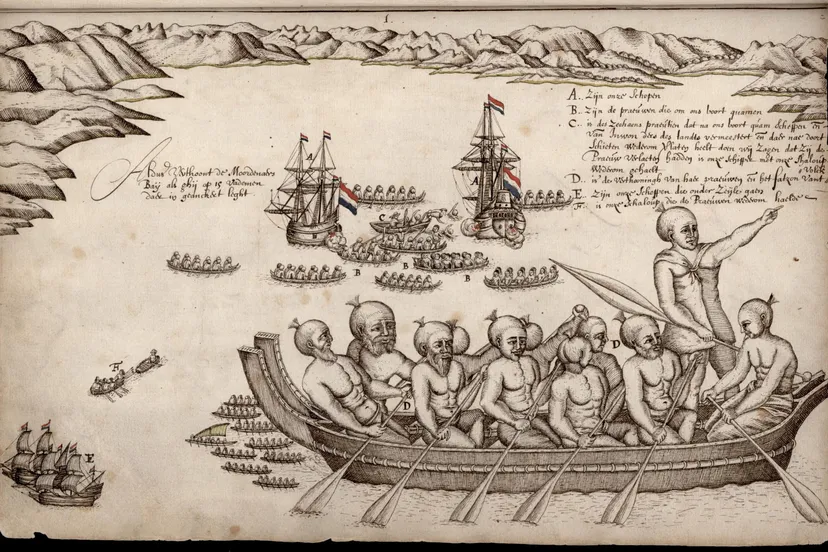 1.
Aldus Verthoont de Moordenaers
Baij als ghij op 15 Vademen
daer in geanckert light
A.. Zijn onze schepen
B. Zijn de praeuwen die om ons boort quamen
C.. is des Zeehaens praeutken dat na ons boort quam scheppen
Van Inwon des landts vermeestert daer nae door
schieten Wederom Verlaten heeft doen wij Zagen dat Zij de
praeuw Verlaeten hadden is onze schipper met onze Chaloup
Wederom gehaelt
D.. is de Verthooningh Van haer praeuwen en het fatzoen Van't Volck
E. Zijn onze scheepen die onder Zeijle gaen
F.. is onze Chaloup die de Praeuwen Wederom haelde
A
A
C
B
B
B
D
D
F
E